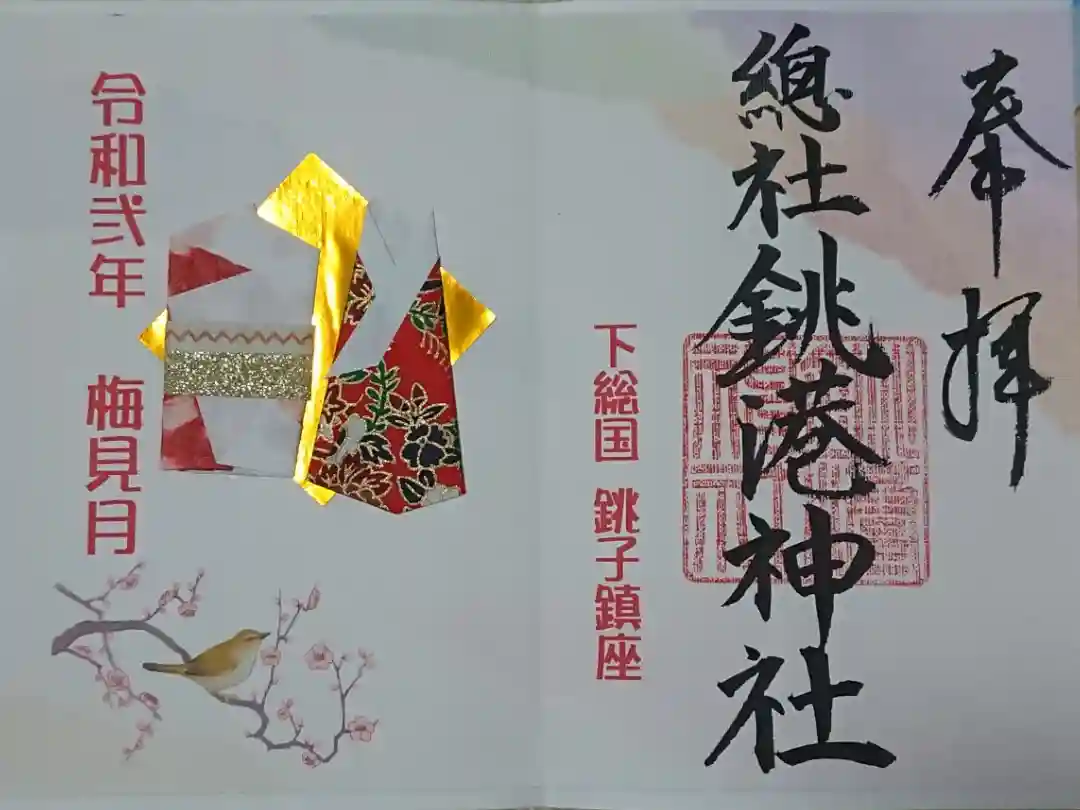 奉拝
總社銚港神社
下総国 銚子鎮座
令和弐年 梅見月